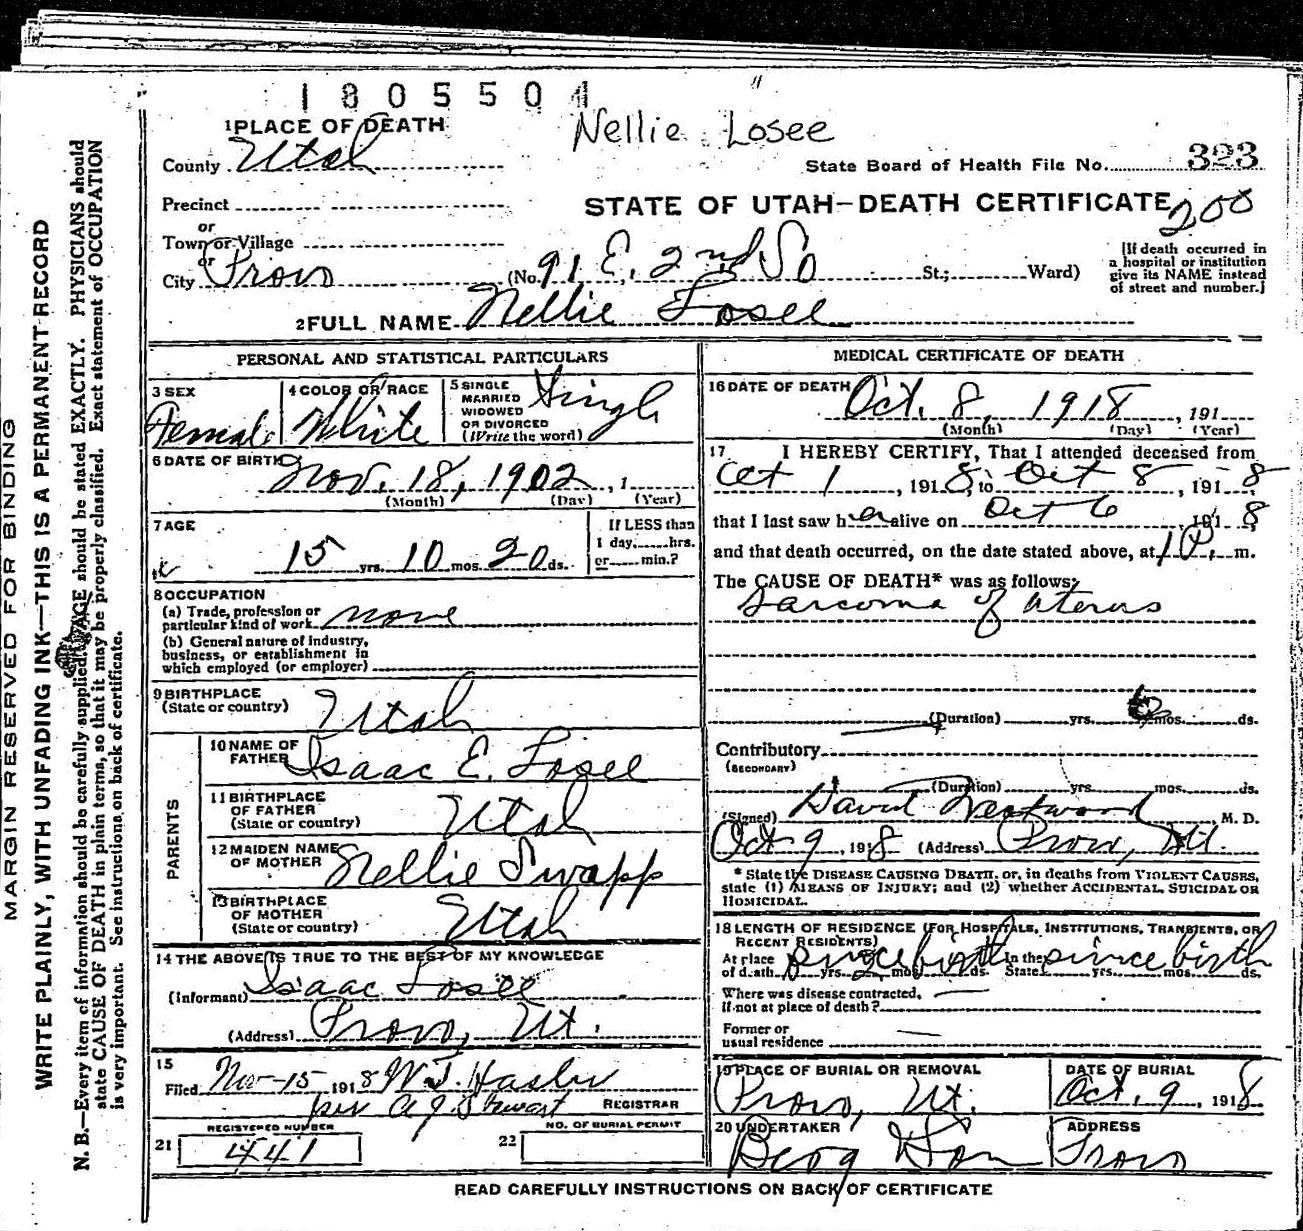 1805504
Nellie Losee
1 PLACE OF DEATH
County Utah
State Board of Health File No. 323
Precinct
STATE OF UTAH—DEATH CERTIFICATE
200
or
Town or Village
or
City Provo (No. 91 E. 2nd So St.; Ward)
[If death occurred in
a hospital or institution
give its NAME instead
of street and number.]
2 FULL NAME Nellie Losee
PERSONAL AND STATISTICAL PARTICULARS
3 SEX
Female
4 COLOR OR RACE
White
5 SINGLE
MARRIED
WIDOWED
OR DIVORCED
(Write the word)
Single
6 DATE OF BIRTH
Nov. 18, 1902, 1
(Month) (Day) (Year)
7 AGE
15 yrs. 10 mos. 20 ds.
If LESS than
1 day,......hrs.
or......min.?
8 OCCUPATION
(a) Trade, profession or
particular kind of work none
(b) General nature of industry,
business, or establishment in
which employed (or employer)
9 BIRTHPLACE
(State or country)
Utah
PARENTS
10 NAME OF
FATHER Isaac E. Losee
11 BIRTHPLACE
OF FATHER
(State or country)
Utah
12 MAIDEN NAME
OF MOTHER Nellie Swapp
13 BIRTHPLACE
OF MOTHER
(State or country)
Utah
14 THE ABOVE IS TRUE TO THE BEST OF MY KNOWLEDGE
(Informant) Isaac Losee
(Address) Provo, Ut.
15
Filed Nov-15, 1918
per A J. Stewart REGISTRAR
REGISTERED NUMBER
21 441
NO. OF BURIAL PERMIT
22
MEDICAL CERTIFICATE OF DEATH
16 DATE OF DEATH
Oct. 8, 1918, 191
(Month) (Day) (Year)
17 I HEREBY CERTIFY, That I attended deceased from
Oct 1, 1918, to Oct 8, 1918
that I last saw her alive on Oct 6 1918
and that death occurred, on the date stated above, at 1 P. m.
The CAUSE OF DEATH* was as follows:
Sarcoma of uterus
(Duration) yrs. mos. ds.
Contributory
(SECONDARY)
(Duration) yrs. mos. ds.
(Signed) David Westwood, M. D.
Oct 9, 1918 (Address) Provo, Ut.
* State the DISEASE CAUSING DEATH, or, in deaths from VIOLENT CAUSES,
state (1) MEANS OF INJURY; and (2) whether ACCIDENTAL, SUICIDAL OR
HOMICIDAL.
18 LENGTH OF RESIDENCE (FOR HOSPITALS, INSTITUTIONS, TRANSIENTS, OR
RECENT RESIDENTS)
At place
of death since birth yrs. mos. ds. In the State since birth yrs. mos. ds.
Where was disease contracted,
if not at place of death?
Former or
usual residence
19 PLACE OF BURIAL OR REMOVAL
Provo, Ut.
DATE OF BURIAL
Oct. 9, 1918
20 UNDERTAKER
Berg
ADDRESS
Provo
READ CAREFULLY INSTRUCTIONS ON BACK OF CERTIFICATE
MARGIN RESERVED FOR BINDING
WRITE PLAINLY, WITH UNFADING INK—THIS IS A PERMANENT RECORD
N. B.—Every item of information should be carefully supplied. AGE should be stated EXACTLY. PHYSICIANS should
state CAUSE OF DEATH in plain terms, so that it may be properly classified. Exact statement of OCCUPATION
is very important. See instructions on back of certificate.